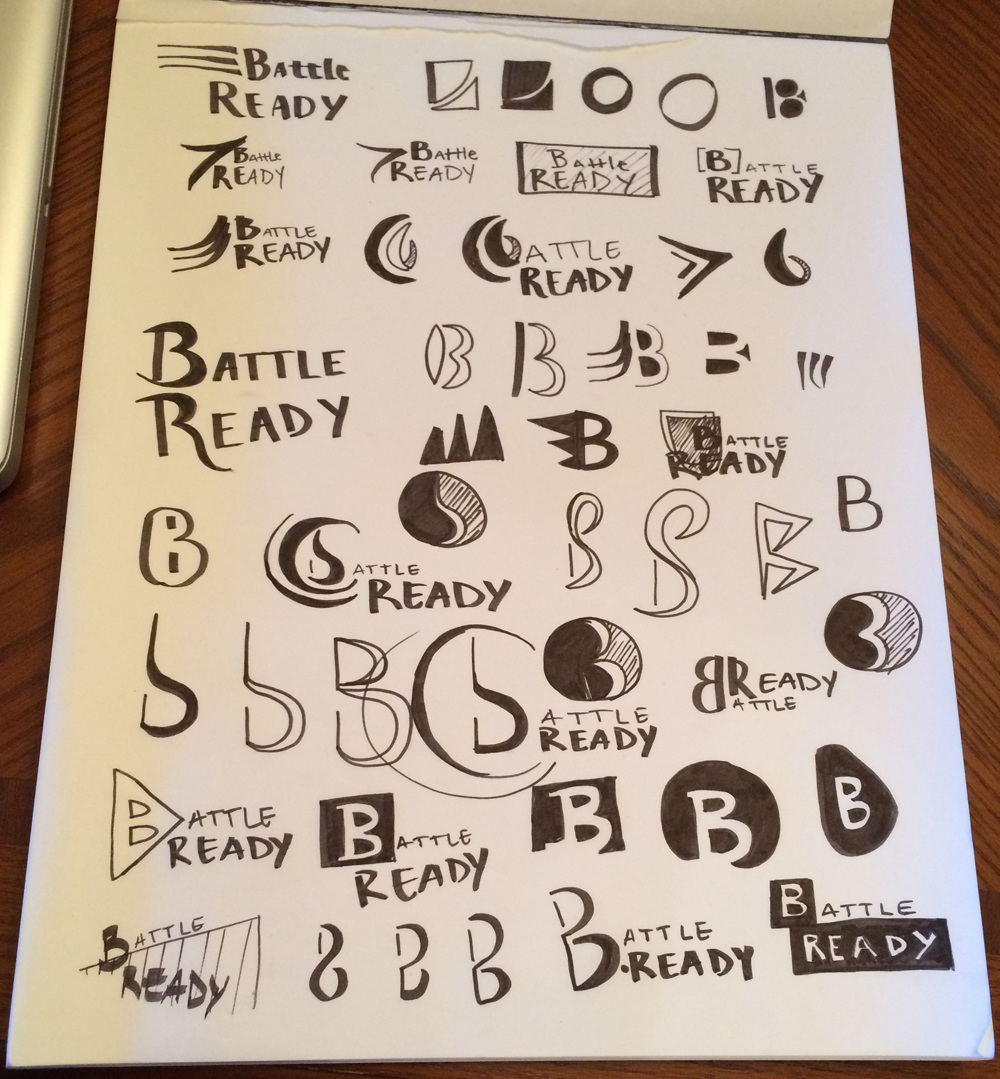 Battle
READY
B
Battle
READY
Battle
READY
Battle
READY
[B]ATTLE
READY
BATTLE
READY
ATTLE
READY
BATTLE
READY
B
B
B
B
B
BATTLE
READY
B
B
ATTLE
READY
B
B
B
B
READY
ATTLE
ATTLE
READY
BATTLE
READY
BATTLE
READY
B
B
B
BATTLE
READY
B
B
BATTLE
READY
BATTLE
READY